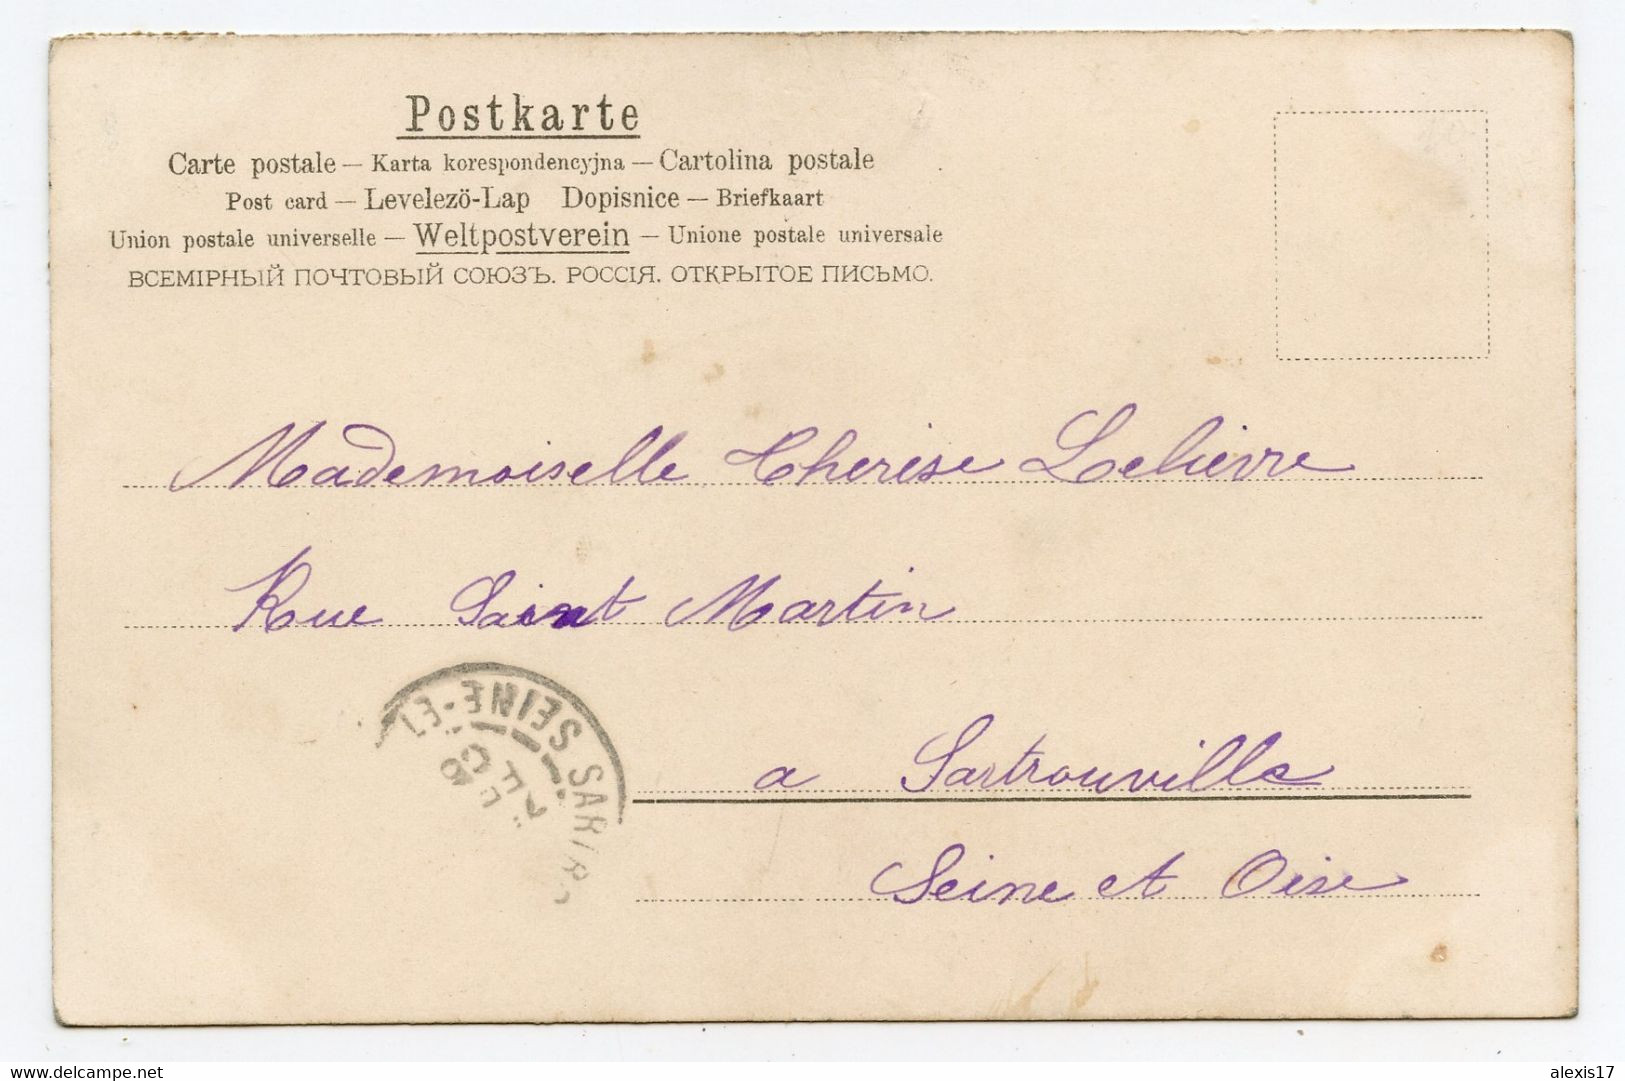 Postkarte
Carte postale — Karta korespondencyjna — Cartolina postale
Post card — Levelezö-Lap Dopisnice — Briefkaart
Union postale universelle — Weltpostverein — Unione postale universale
ВСЕМІРНЫЙ ПОЧТОВЫЙ СОЮЗЪ. РОССІЯ. ОТКРЫТОЕ ПИСЬМО.
Mademoiselle Therèse Lelièvre
Rue Saint Martin
SEINE-ET
SARTRO
a Sartrouville
Seine et Oise
www.delcampe.net
alexis17